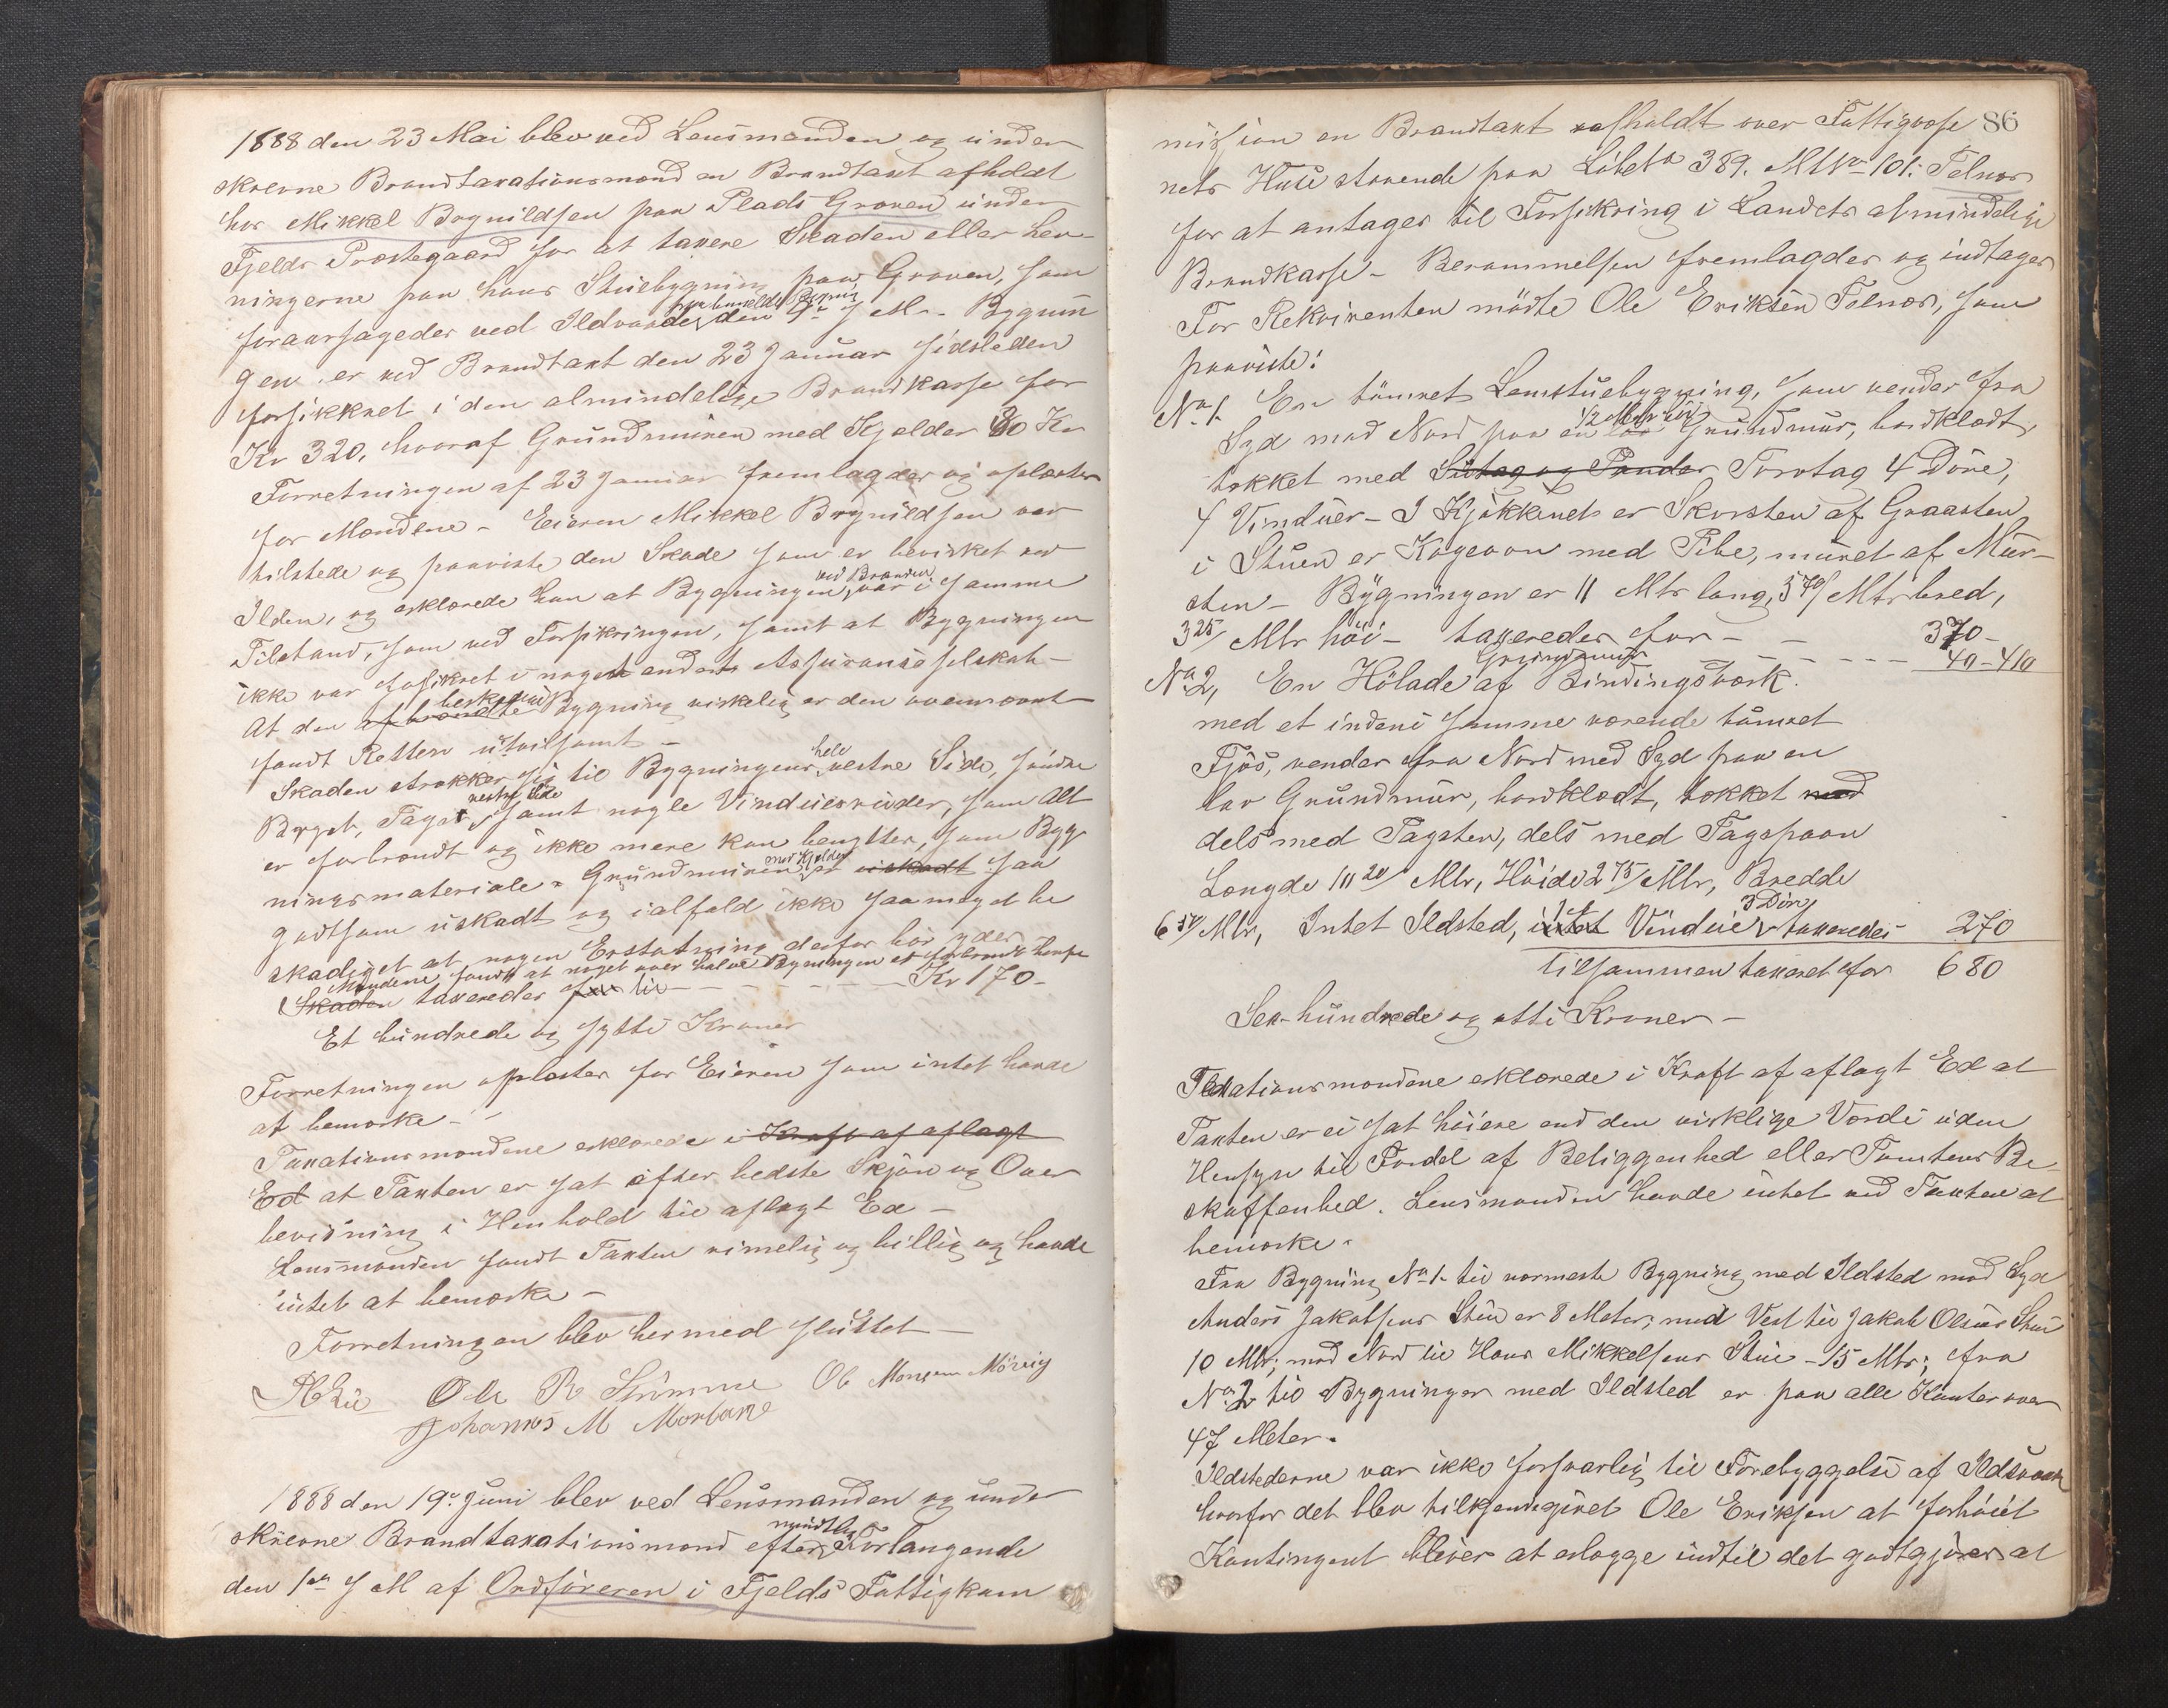 1888 den 23 Mai blev ved Lensmanden og under
skrevne Brandtaxationsmænd en Brandtaxt afholdt
hos Mikkel Brynildsen paa Plads Graven under
Fjelds Præstegaard for at taxere Skaden eller Lev-
ningerne paa hans Stuebygning paa Graven, som
foraarsagedes ved Ildvaade den 9de d M. - Bygnin
gen er ved Brandtaxt den 23 Januar sidstleden
forsikkret i den almindelige Brandkasse for
Kr 320, hvoraf Grundmuren med Kjelder 80 Kr
Forretningen af 23 Januar fremlagdes og oplæstes
for Mændene - Eieren Mikkel Brynildsen var
tilstede og paaviste den Skade som er bevirket ved
Ilden, og erklærede han at Bygningen ved Branden var i samme
Tilstand, som ved Forsikringen, samt at Bygningen
ikke var forsikret i noget andet Assuranceselskab -
At den afbrændte beskadigede Bygning virkelig er den ovennævnte
fandt Retten utvilsomt -
Skaden strækker sig til Bygningens hele vestre Side, søndre
Bryst, Taget vestre Side samt nogle Vinduesruder, som Alt
er forbrændt og ikke mere kan benyttes, som Byg-
ningsmateriale - Grundmuren med Kjelder er uskadt saa
godtsom uskadt og ialfald ikke saameget be
skadiget at nogen Erstatning derfor bør ydes
Mændene fandt at noget over halve Bygningen er forbrændt
Skaden taxeredes til - - - - - - Kr 170 -
Et hundrede og sytti Kroner
Forretningen oplæstes for Eieren som intet havde
at bemærke -
Taxationsmændene erklærede i Kraft af aflagt
Ed at Taxten er sat efter bedste Skjøn og Over
bevisning i Henhold til aflagt Ed -
Lensmanden fandt Taxten rimelig og billig og havde
intet at bemærke -
Forretningen blev hermed sluttet -
Ole R Strømme Ole Monsen Morvig
Johannes M Morland
1888 den 19de Juni blev ved Lensmanden og under
skrevne Brandtaxationsmænd efter mundtlig Forlangende
den 1ste d M af Ordføreren i Fjelds Fattigkom
86
mission en Brandtaxt afholdt over Fattigvæse
nets Huse staaende paa Løbe No 389. M No 101: Telnæs
for at antages til Forsikring i Landets almindelige
Brandkasse - Berammelsen fremlagdes og indtages
For Rekvirenten mødte Ole Eriksen Telnæs, som
paaviste:
No 1. En tømret Lemstuebygning, som vender fra
Syd mod Nord paa en lav 1/2 Meter høi Grundmur, bordklædt,
tækket med Sutag og Pander Torvtag 4 Døre,
4 Vinduer - I Kjøkkenet er Skorsten af Graasten
i Stuen er Kogeovn med Pibe, muret af Mur-
sten - Bygningen er 11 Mtr lang, 5 70/ Mtr bred,
3 25/ Mtr høi - taxeredes for - - 370 -
Grundmur - - - - - 40 - 410
No 2, En Hølade af Bindingsværk
med et indeni samme værende tømret
Fjøs, vender fra Nord mod Syd paa en
lav Grundmur, bordklædt, tækket med
dels med Tagsten, dels med Tagspaan
Længde 10 20/ Mtr, Høide 2 75/ Mtr, Bredde
6 50/ Mtr, Intet Ildsted, intet 1 Vindue 3 Dør taxeredes 270
Tilsammen taxeret for 680
Sex hundrede og otti Kroner -
Taxationsmændene erklærede i Kraft af aflagt Ed at
Taxten er ei sat høiere end den virklige Værdi uden
Hensyn til Fordel af Beliggenhed eller Tomtens Be
skaffenhed. Lensmanden havde intet ved Taxten at
bemærke -
Fra Bygning No 1 til nærmeste Bygning med Ildsted mod Syd
Anders Jakobsens Stue er 8 Meter; mod Vest til Jakob Olsens Stue
10 Mtr; mod Nord til Hans Mikkelsens Stue - 15 Mtr; fra
No 2 til Bygninger med Ildsted er paa alle Kanter over
47 Meter.
Ildstederne var ikke forsvarlig til Forebyggelse af Ildsvaade
hvorfor det blev tilkjendegivet Ole Eriksen at forhøiet
Kontingent bliver at erlægge indtil det godtgjøres at